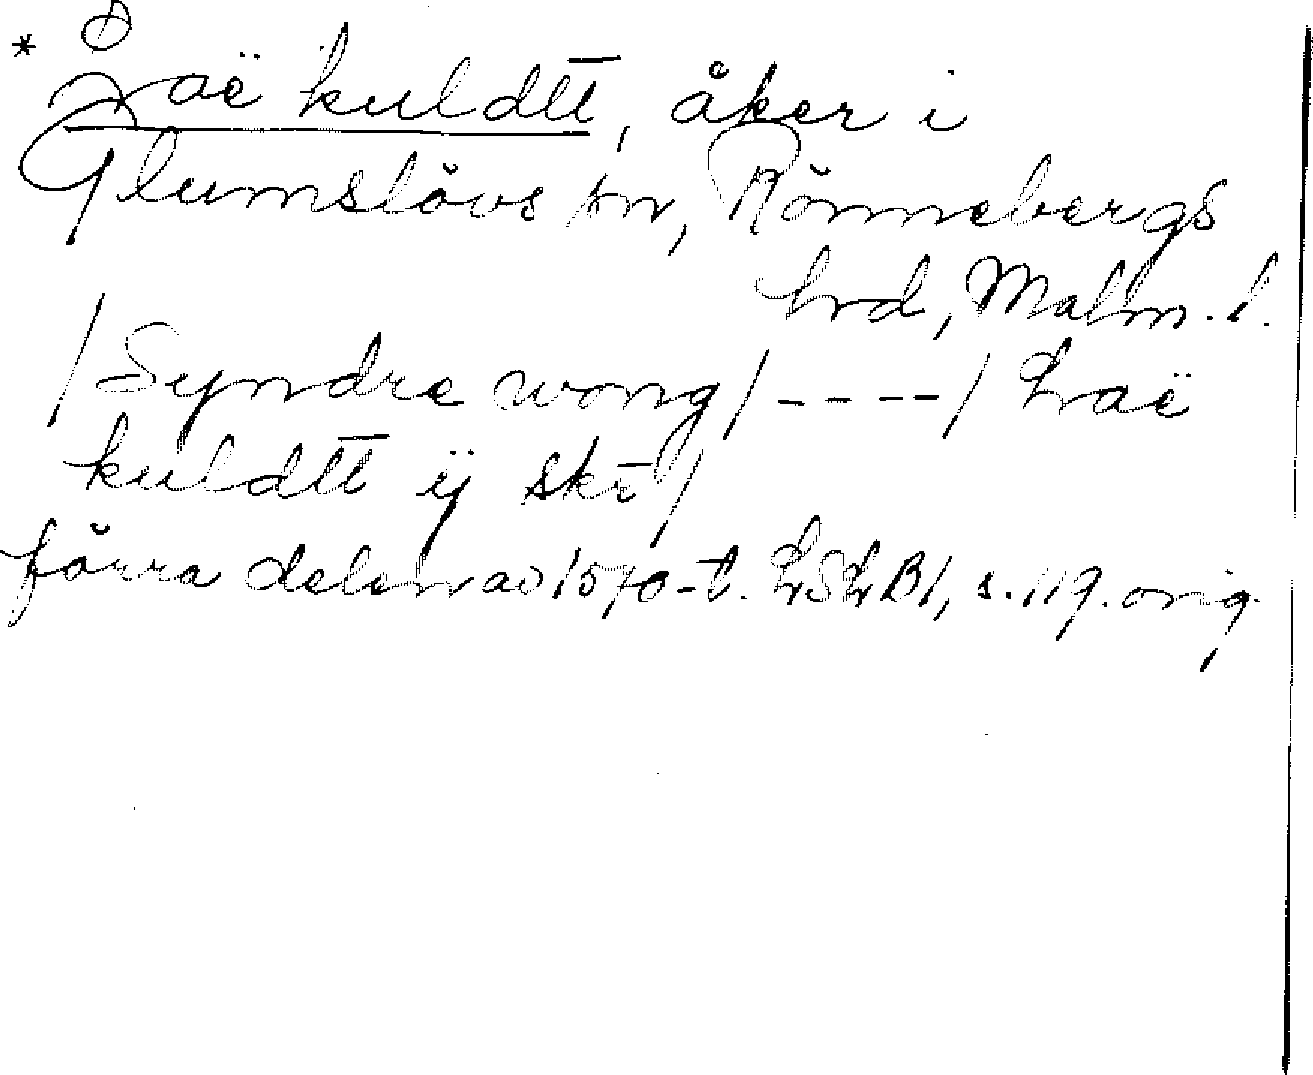 * Laë kuldtt̄, åker i
Glumslövs sn, Rönnebergs
hrd, Malm. l.
/Syndre wong/----/ Laë
kuldtt̄ ij skr̄/
förra delen av 1570-t. LSLB1, s. 119. orig.